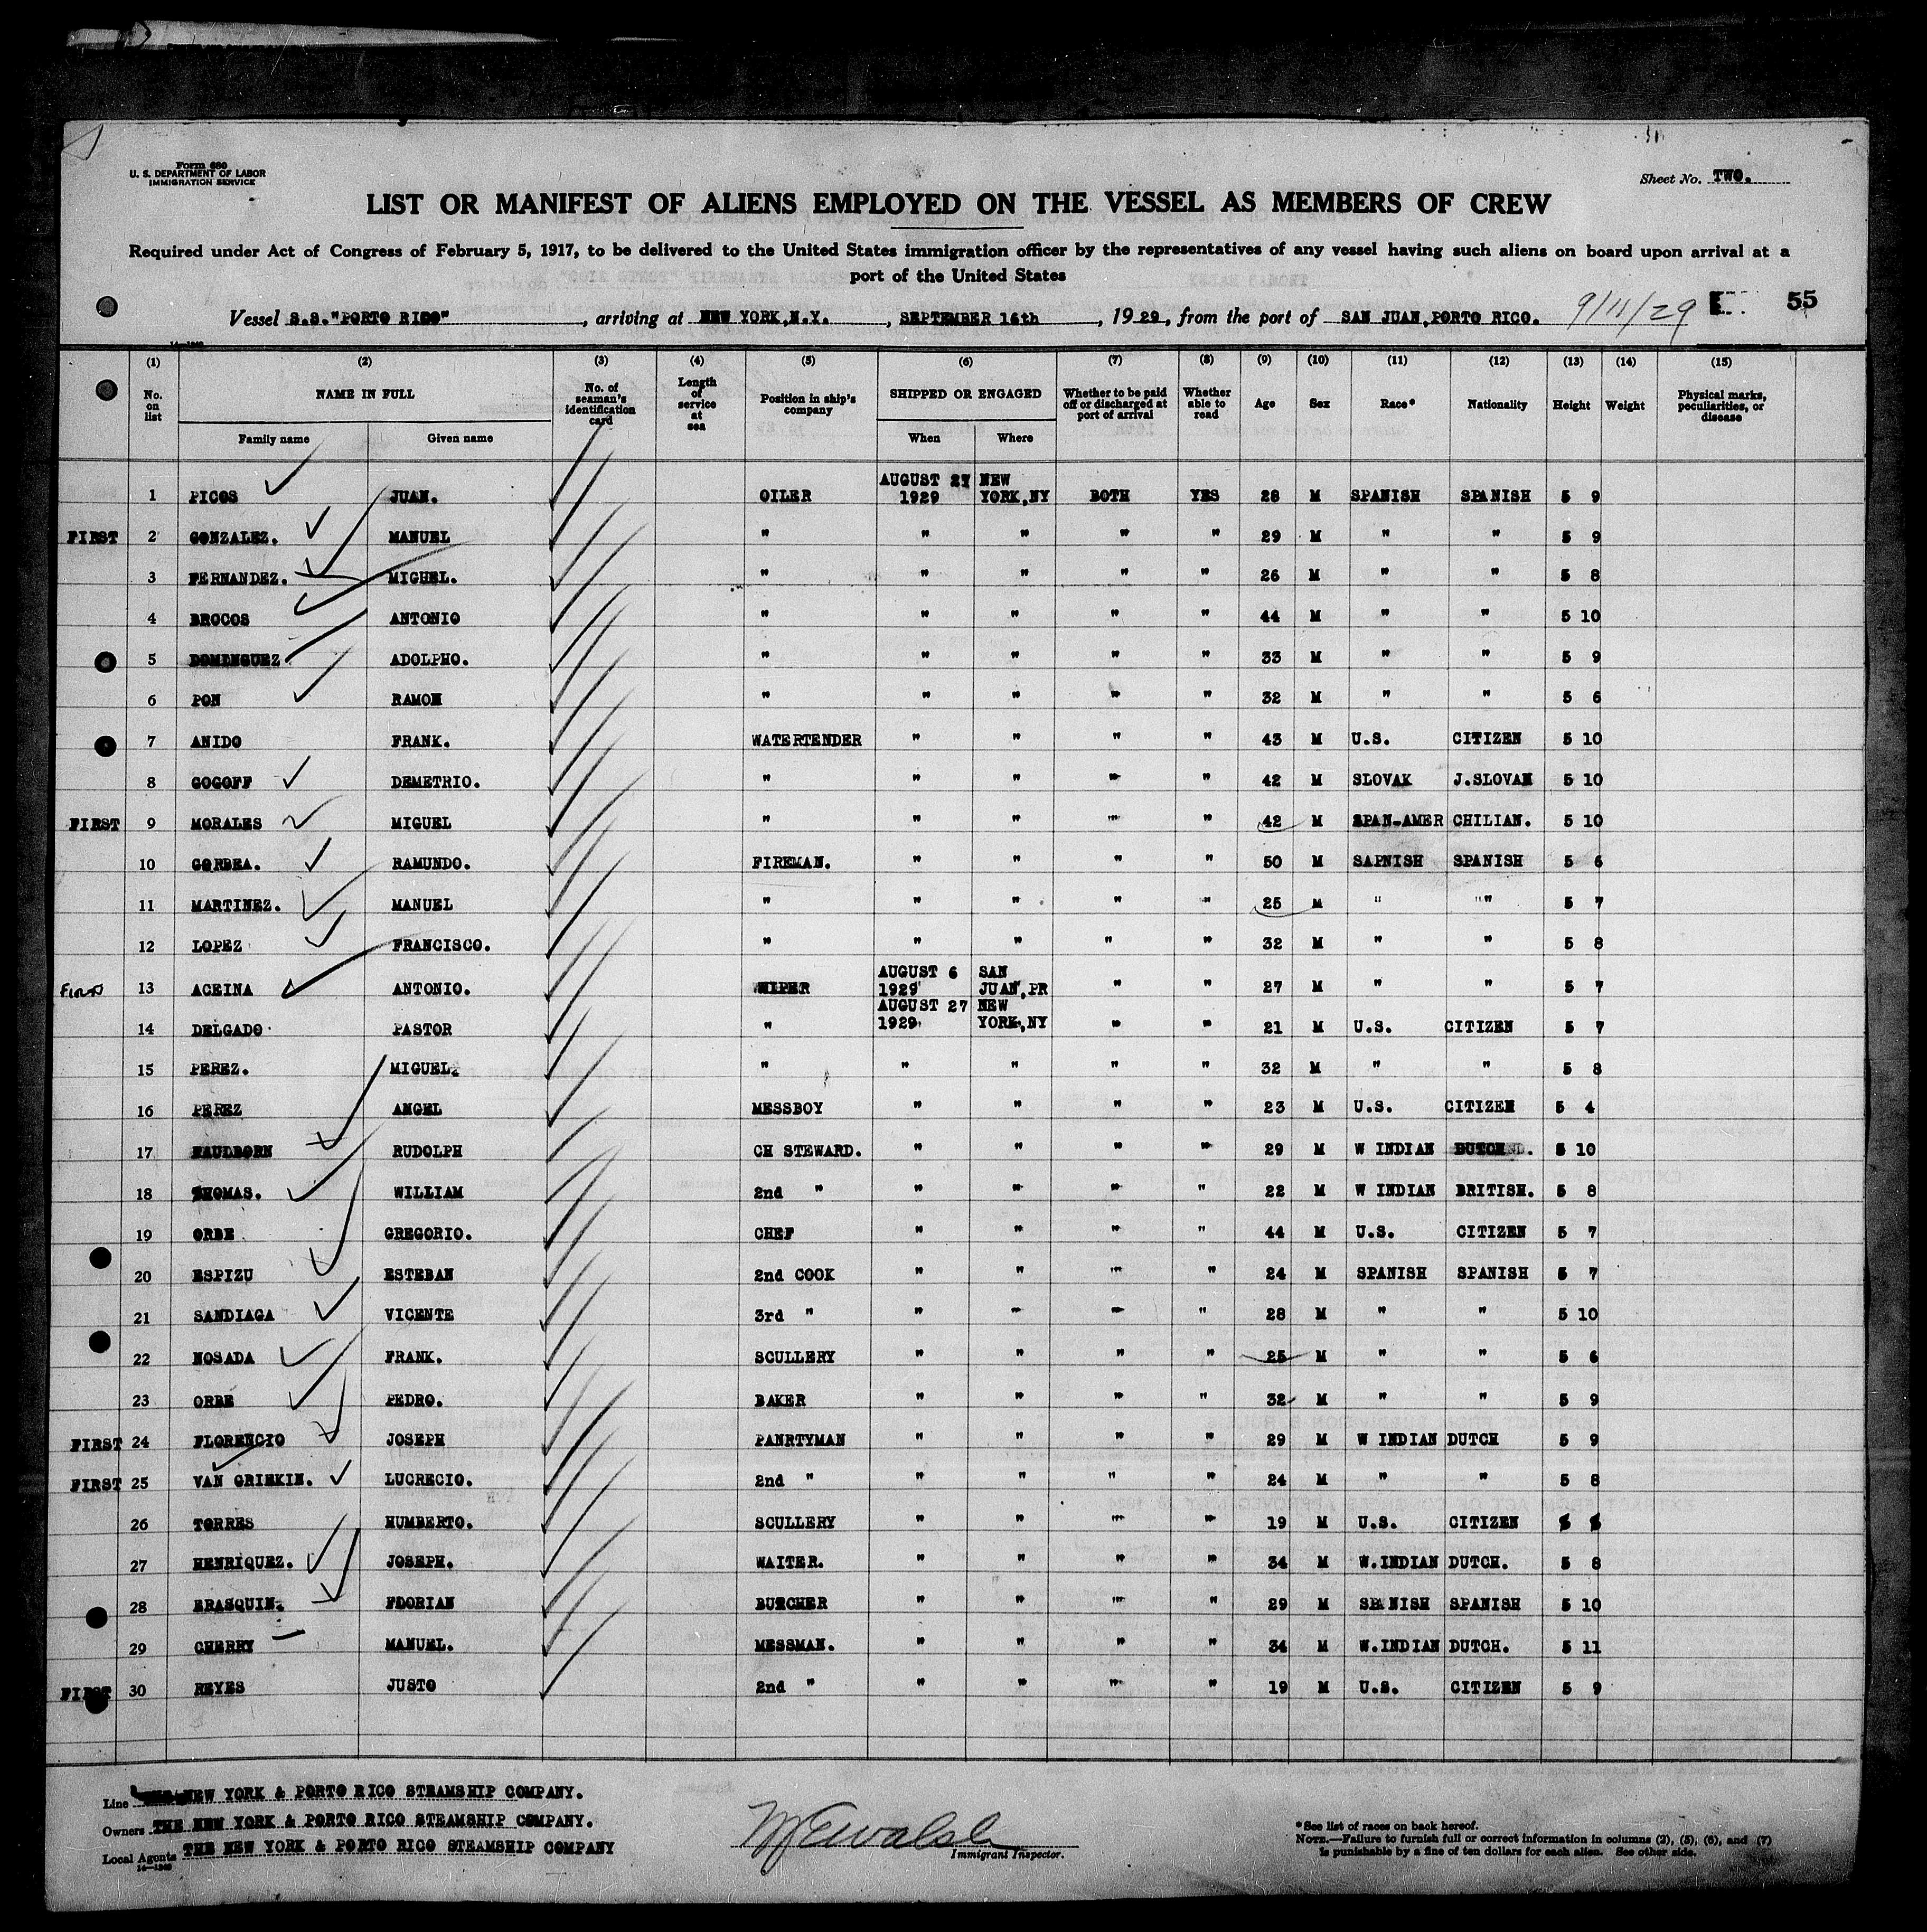 Form 680
U. S. DEPARTMENT OF LABOR
IMMIGRATION SERVICE
Sheet No. TWO.
LIST OR MANIFEST OF ALIENS EMPLOYED ON THE VESSEL AS MEMBERS OF CREW
Required under Act of Congress of February 5, 1917, to be delivered to the United States immigration officer by the representatives of any vessel having such aliens on board upon arrival at a
port of the United States
Vessel S.S."PORTO RICO", arriving at NEW YORK,N.Y., SEPTEMBER 16th, 1929, from the port of SAN JUAN,PORTO RICO. 9/11/29 E 55
(1) (2) (3) (4) (5) (6) (7) (8) (9) (10) (11) (12) (13) (14) (15)
No. on list NAME IN FULL Family name Given name No. of seaman's identification card Length of service at sea Position in ship's company SHIPPED OR ENGAGED When Where Whether to be paid off or discharged at port of arrival Whether able to read Age Sex Race* Nationality Height Weight Physical marks, peculiarities, or disease
1 PICOS JUAN. OILER AUGUST 27 1929 NEW YORK,NY BOTH YES 28 M SPANISH SPANISH 5 9
FIRST 2 GONZALEZ. MANUEL " " " " " 29 M " " 5 9
3 FERNANDEZ. MIGHEL. " " " " " 26 M " " 5 8
4 BROCOS ANTONIO " " " " " 44 M " " 5 10
5 DOMINGUEZ ADOLPHO. " " " " " 33 M " " 5 9
6 PON RAMON " " " " " 32 M " " 5 6
7 ANIDO FRANK. WATERTENDER " " " " 43 M U.S. CITIZEN 5 10
8 GOGOFF DEMETRIO. " " " " " 42 M SLOVAK J.SLOVAN 5 10
FIRST 9 MORALES MIGUEL " " " " " 42 M SPAN-AMER CHILIAN. 5 10
10 GORBEA. RAMUNDO. FIREMAN. " " " " 50 M SAPNISH SPANISH 5 6
11 MARTINEZ. MANUEL " " " " " 25 M " " 5 7
12 LOPEZ FRANCISCO. " " " " " 32 M " " 5 8
First 13 ACEINA ANTONIO. WIPER AUGUST 6 1929 SAN JUAN,PR " " 27 M " " 5 7
14 DELGADO PASTOR " AUGUST 27 1929 NEW YORK,NY " " 21 M U.S. CITIZEN 5 7
15 PEREZ. MIGUEL. " " " " " 32 M " " 5 8
16 PEREZ ANGEL MESSBOY " " " " 23 M U.S. CITIZEN 5 4
17 RUDOLPH CH STEWARD. " " " " 29 M W INDIAN DUTCH. 5 10
18 THOMAS. WILLIAM 2nd " " " " " 22 M W INDIAN BRITISH. 5 8
19 ORBE GREGORIO. CHEF " " " " 44 M U.S. CITIZEN 5 7
20 ESPIZU ESTEBAN 2nd COOK " " " " 24 M SPANISH SPANISH 5 7
21 SANDIAGA VICENTE 3rd " " " " " 28 M " " 5 10
22 NOSADA FRANK. SCULLERY " " " " 25 M " " 5 6
23 ORBE PEDRO. BAKER " " " " 32 M " " 5 9
FIRST 24 FLORENCIO JOSEPH PANRTYMAN " " " " 29 M W INDIAN DUTCH 5 9
FIRST 25 VAN GRIEKIN. LUCRECIO. 2nd " " " " " 24 M " " 5 8
26 TORRES HUMBERTO. SCULLERY " " " " 19 M U.S. CITIZEN 5
27 HENRIQUEZ. JOSEPH. WAITER. " " " " 34 M W.INDIAN DUTCH. 5 8
28 ERASQUIN. FDORIAN BUTCHER " " " " 29 M SPANISH SPANISH 5 10
29 CHERRY MANUEL. MESSMAN. " " " " 34 M W.INDIAN DUTCH. 5 11
FIRST 30 REYES JUSTO 2nd " " " " " 19 M U.S. CITIZEN 5 9
Line NEW YORK & PORTO RICO STEAMSHIP COMPANY.
Owners THE NEW YORK & PORTO RICO STEAMSHIP COMPANY.
Local Agents THE NEW YORK & PORTO RICO STEAMSHIP COMPANY
14—1240
Immigrant Inspector.
*See list of races on back hereof.
NOTE.—Failure to furnish full or correct information in columns (2), (5), (6), and (7)
is punishable by a fine of ten dollars for each alien. See other side.